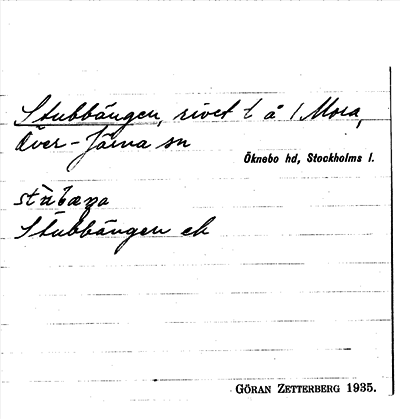 Stubbängen, rivet t å 1 Mora,
Över-Järna sn
Öknebo hd, Stockholms l.
Stubbängen ek
GÖRAN ZETTERBERG 1935.